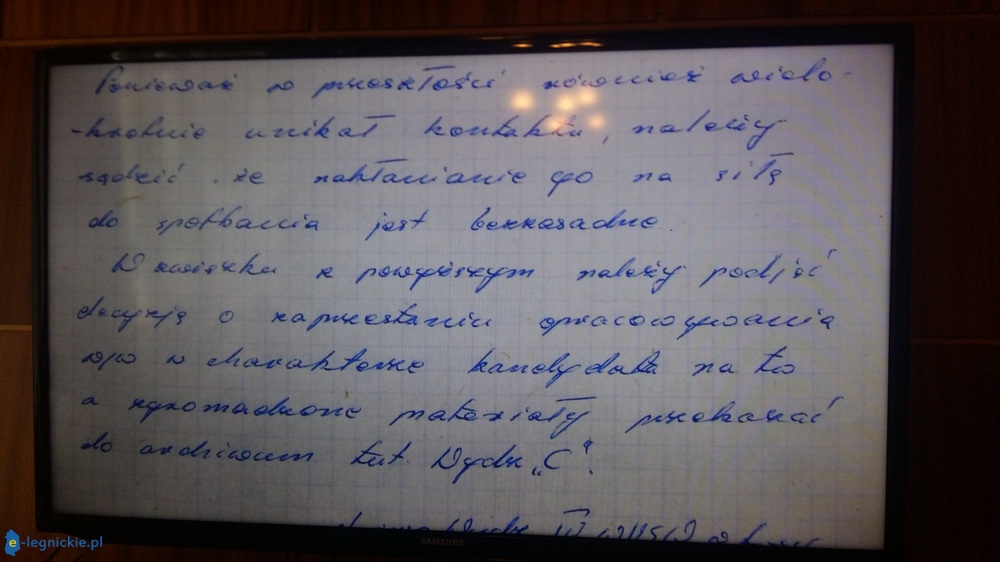 Ponieważ w przeszłości również wielo-
-krotnie unikał kontaktu, należy
sądzić że nakłanianie go na siłę
do spotkania jest bezzasadne.
W związku z powyższym należy podjąć
decyzję o zaprzestaniu opracowywania
w/w w charakterze kandydata na tw
a zgromadzone materiały przekazać
do archiwum tut. Wydz. „C".
Wydz III
SAMSUNG
e-legnickie.pl